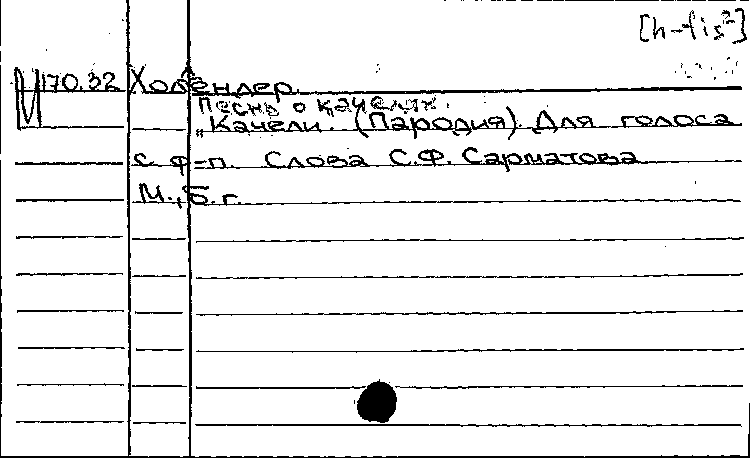 [h-fis²]
170.32 Холендер.
Песнь о качелях.
„Качели. (Пародия). Для голоса
с ф-п. Слова С.Ф. Сарматова
М., Б.г.